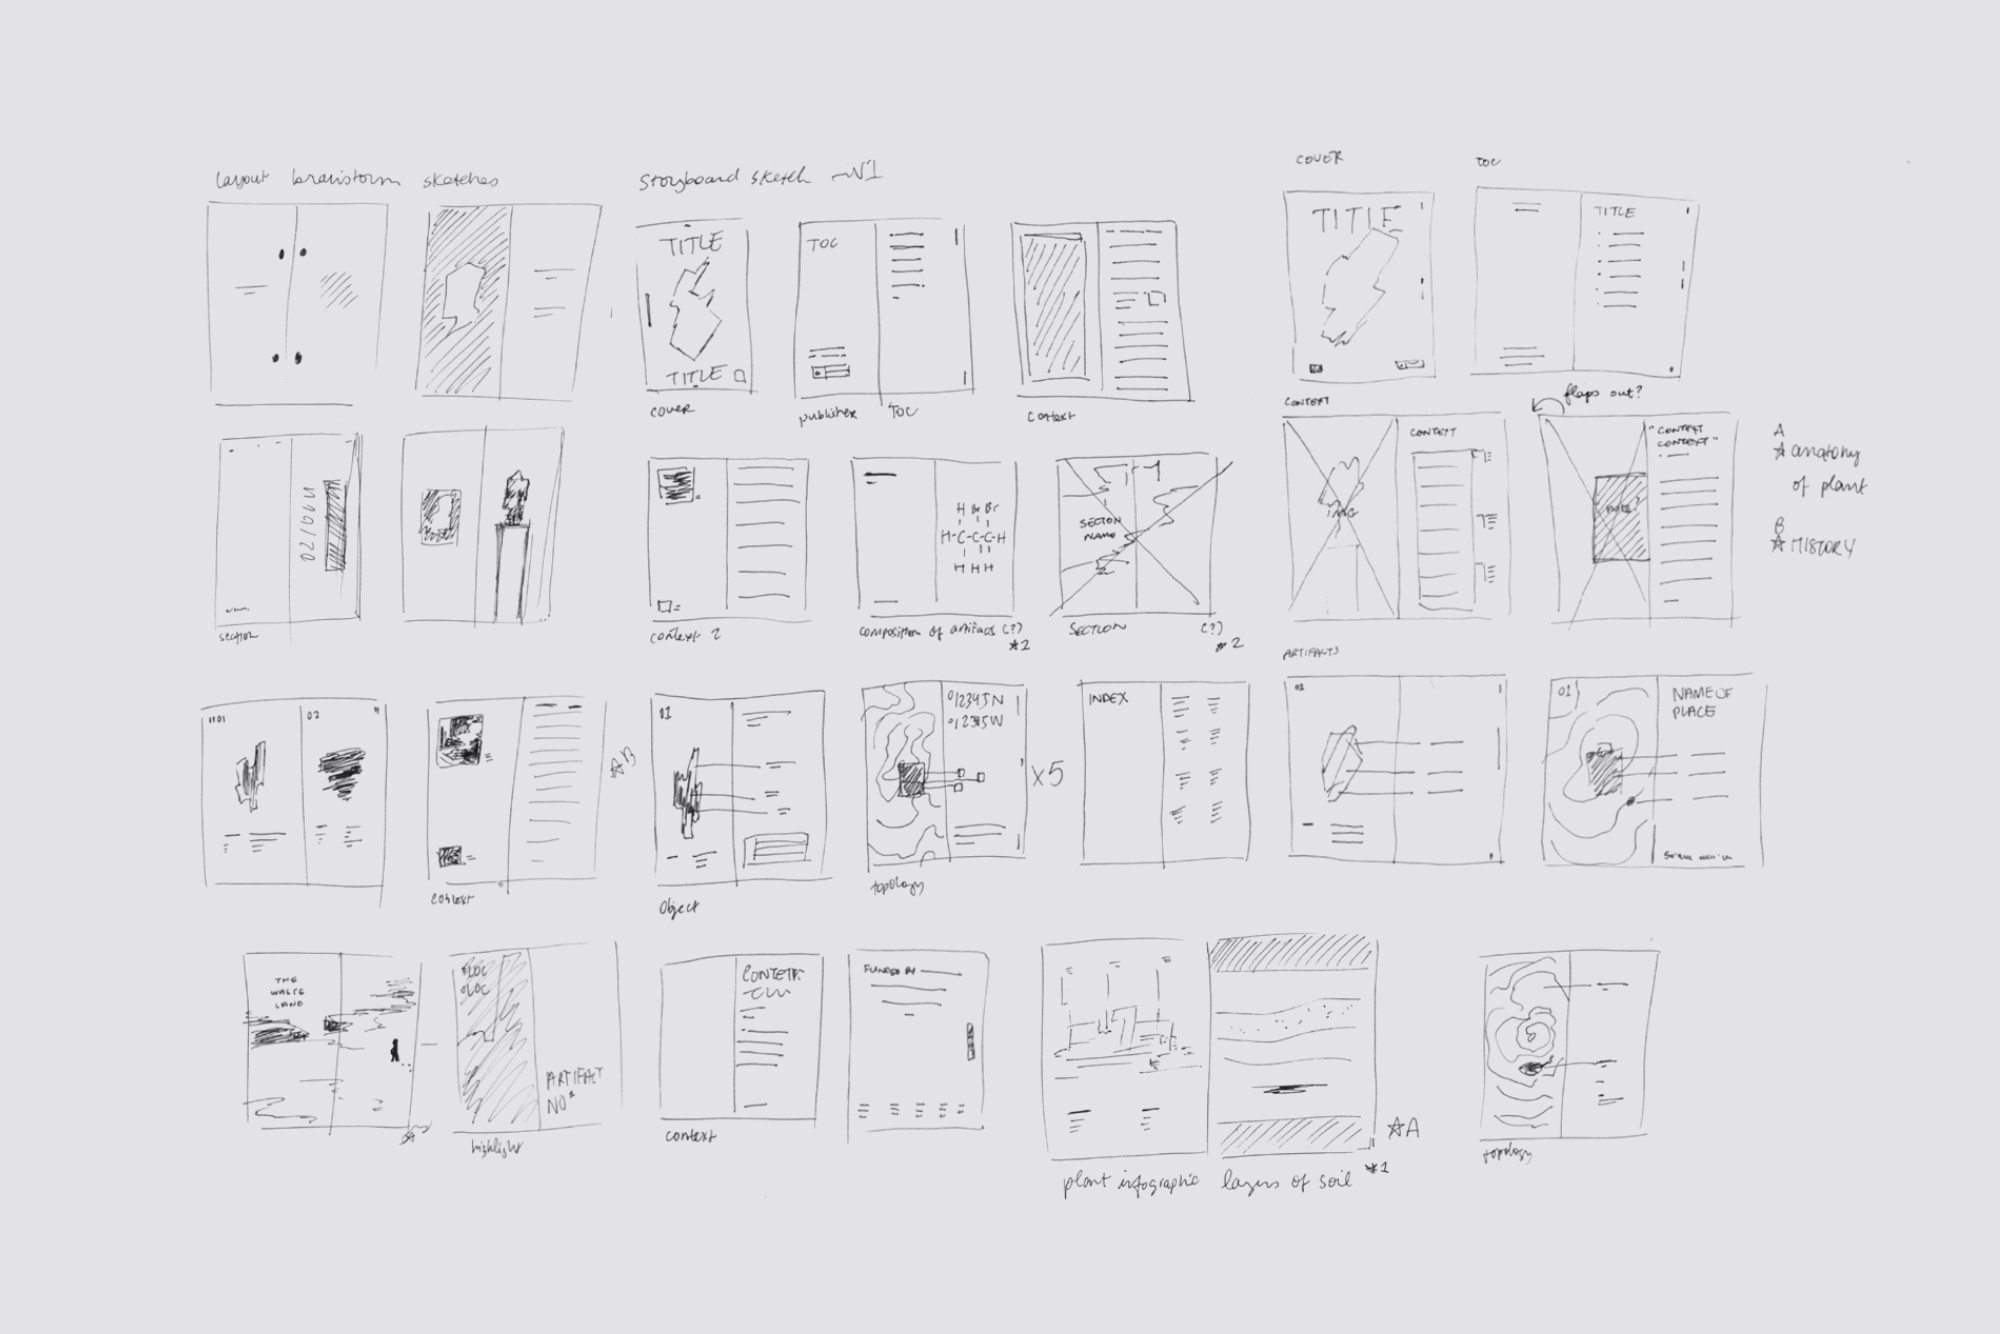 layout brainstorm sketches
section
01
02
context
THE
WASTE
LAND
LOC
LOC
ARTIFACT
NO1
highlight
Storyboard sketch
V1
TITLE
TITLE
cover
TOC
publisher
TOC
context
context 2
H Br Br
H-C-C-C-H
H H H
composition of artifacs (?)
*2
SECTION
NAME
SECTION
(?)
*2
01
Object
012345N
012345W
topology
X5
INDEX
B
context
FUNDED BY
plant infographic
layers of soil
*1
A
COVER
TITLE
TOC
TITLE
flaps out?
CONTEXT
IMG
CONTEXT
"CONTEXT
CONTEXT"
A
anatomy
of plant
B
HISTORY
ARTIFACTS
01
01
NAME OF
PLACE
topology